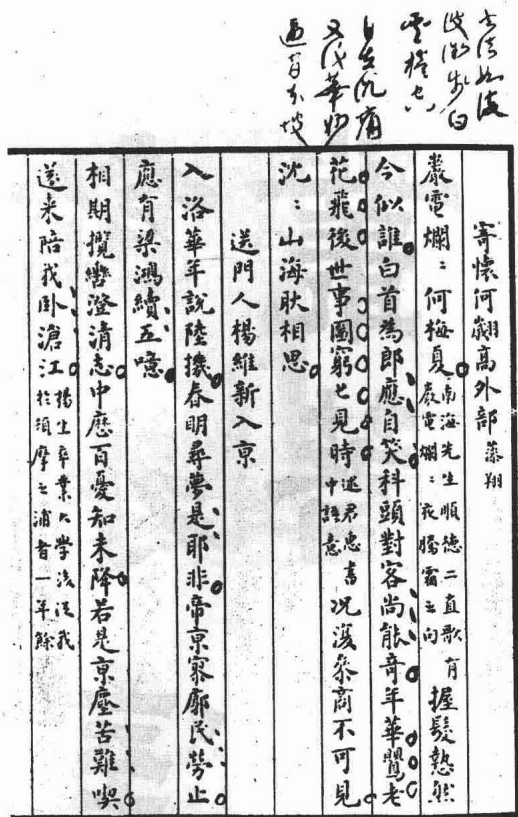 沉痛
華妙
寄懷何翽高外部藻翔
巖電爛〻何梅夏南海先生順德二直歌有巖電爛〻騰霜之句握髮然
今似誰白首為郎應自笑科頭對客尚能奇年華鶯老
花飛後世事圖窮匕見時述君惠書中語意況復參商不可見
沈〻山海耿相思
送門人楊維新入京
入洛華年說陸機春明尋夢是耶非帝京寥廓民勞止
應有梁鴻續五噫
相期攬轡澄清志中歷百憂知未降若是京塵苦難喫
還來陪我卧滄江楊生卒業大學後從我於須摩之浦者一年餘